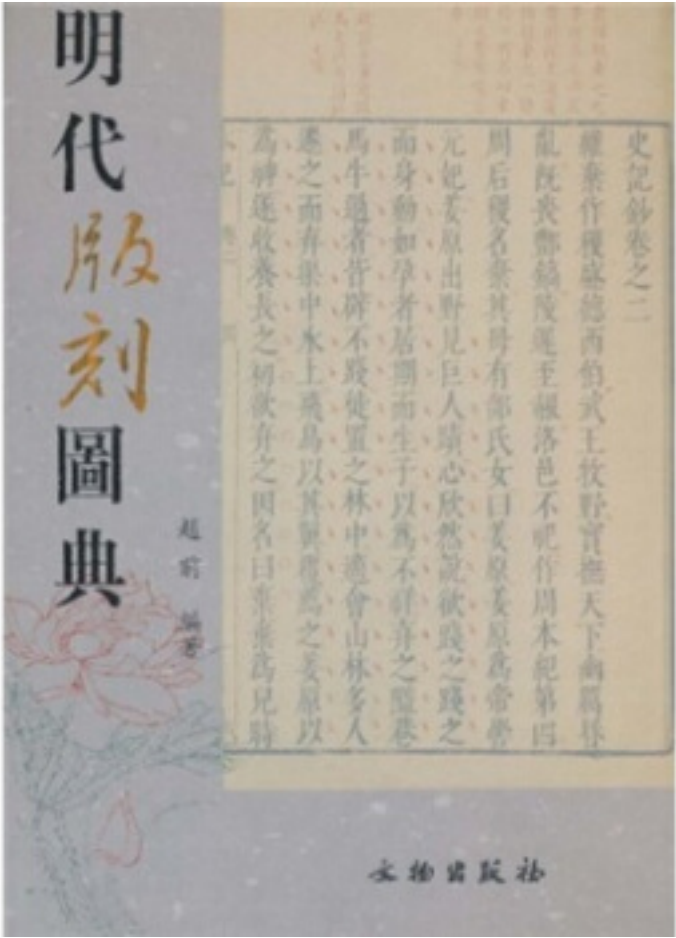 明代版刻圖典
趙前 編著
史記鈔卷之二
維棄作稷德西伯武王牧野實撫天下幽厲昬
亂既喪酆鎬陵遲至赧洛邑不祀作周本紀第四
周后稷名棄其母有邰氏女曰姜原姜原爲帝嚳
元妃姜原出野見巨人跡心欣然說欲踐之踐之
而身動如孕者居期而生子以爲不祥弃之隘巷
馬牛過者皆辟不踐徙置之林中適會山林多人
遷之而弃渠中氷上飛鳥以其翼覆薦之姜原以
爲神遂收養長之初欲弃之因名曰棄棄爲兒時
文物出版社